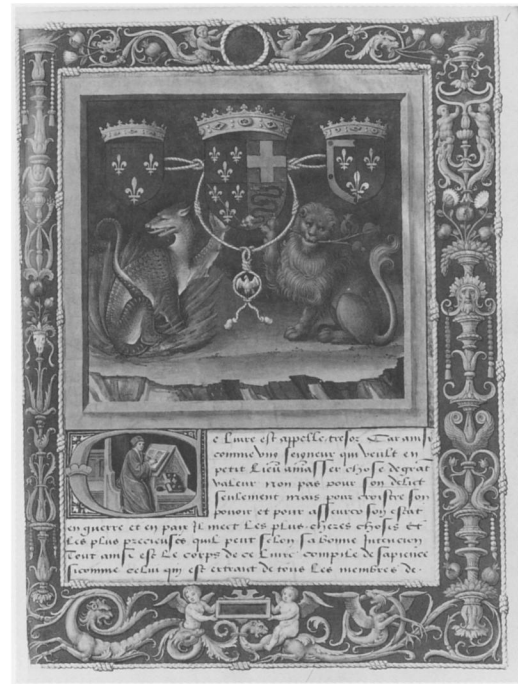 e Livre est appelle tresor Car ainsi
comme ung seigneur qui veult en
petit lieu amasser chose de grāt
valeur non pas pour son delict
seulement mais pour croistre son
povoir et pour asseurer son estat
en guerre et en paix Il mect les plus cheres choses Et
les plus precieuses quil peut selon sa bonne Intencion
Tout ainsi est le corps de ce Livre compile de sapience
sicomme celui qui est extrait de tous les membres de